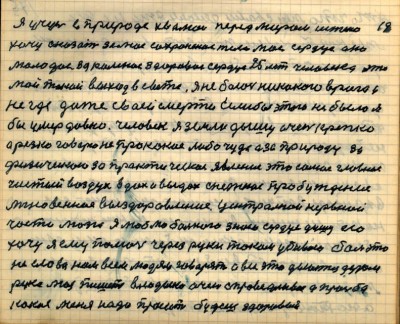 Я учусь в природе хвалюсь перед миром истино 68
хочу сказать за мое сохранное тело мое сердце оно
молодое закаленое здоровое сердце 25 лет человека это
мой такой выход в свете, я не боюсь никакого врага
не где даже своей смерти Если бы этого не было я
бы умер давно. Человек я земли дышу очень крепко
а резко говорю не про какое либо чудо а за природу за
физическое за практическое явление это самое главное
чистый воздух вдох и выдох снежное пробуждение
мгновенное выздоровление центральной нервной
части мозга Я люблю больного знаю сердце душу его
хочу я ему помочь через руки током убиваю боль это
не слова нам всем людям говорят а все это делается делом
рука моя пишет владыко очень справедливая просьба
какая меня надо просить будешь здоровый